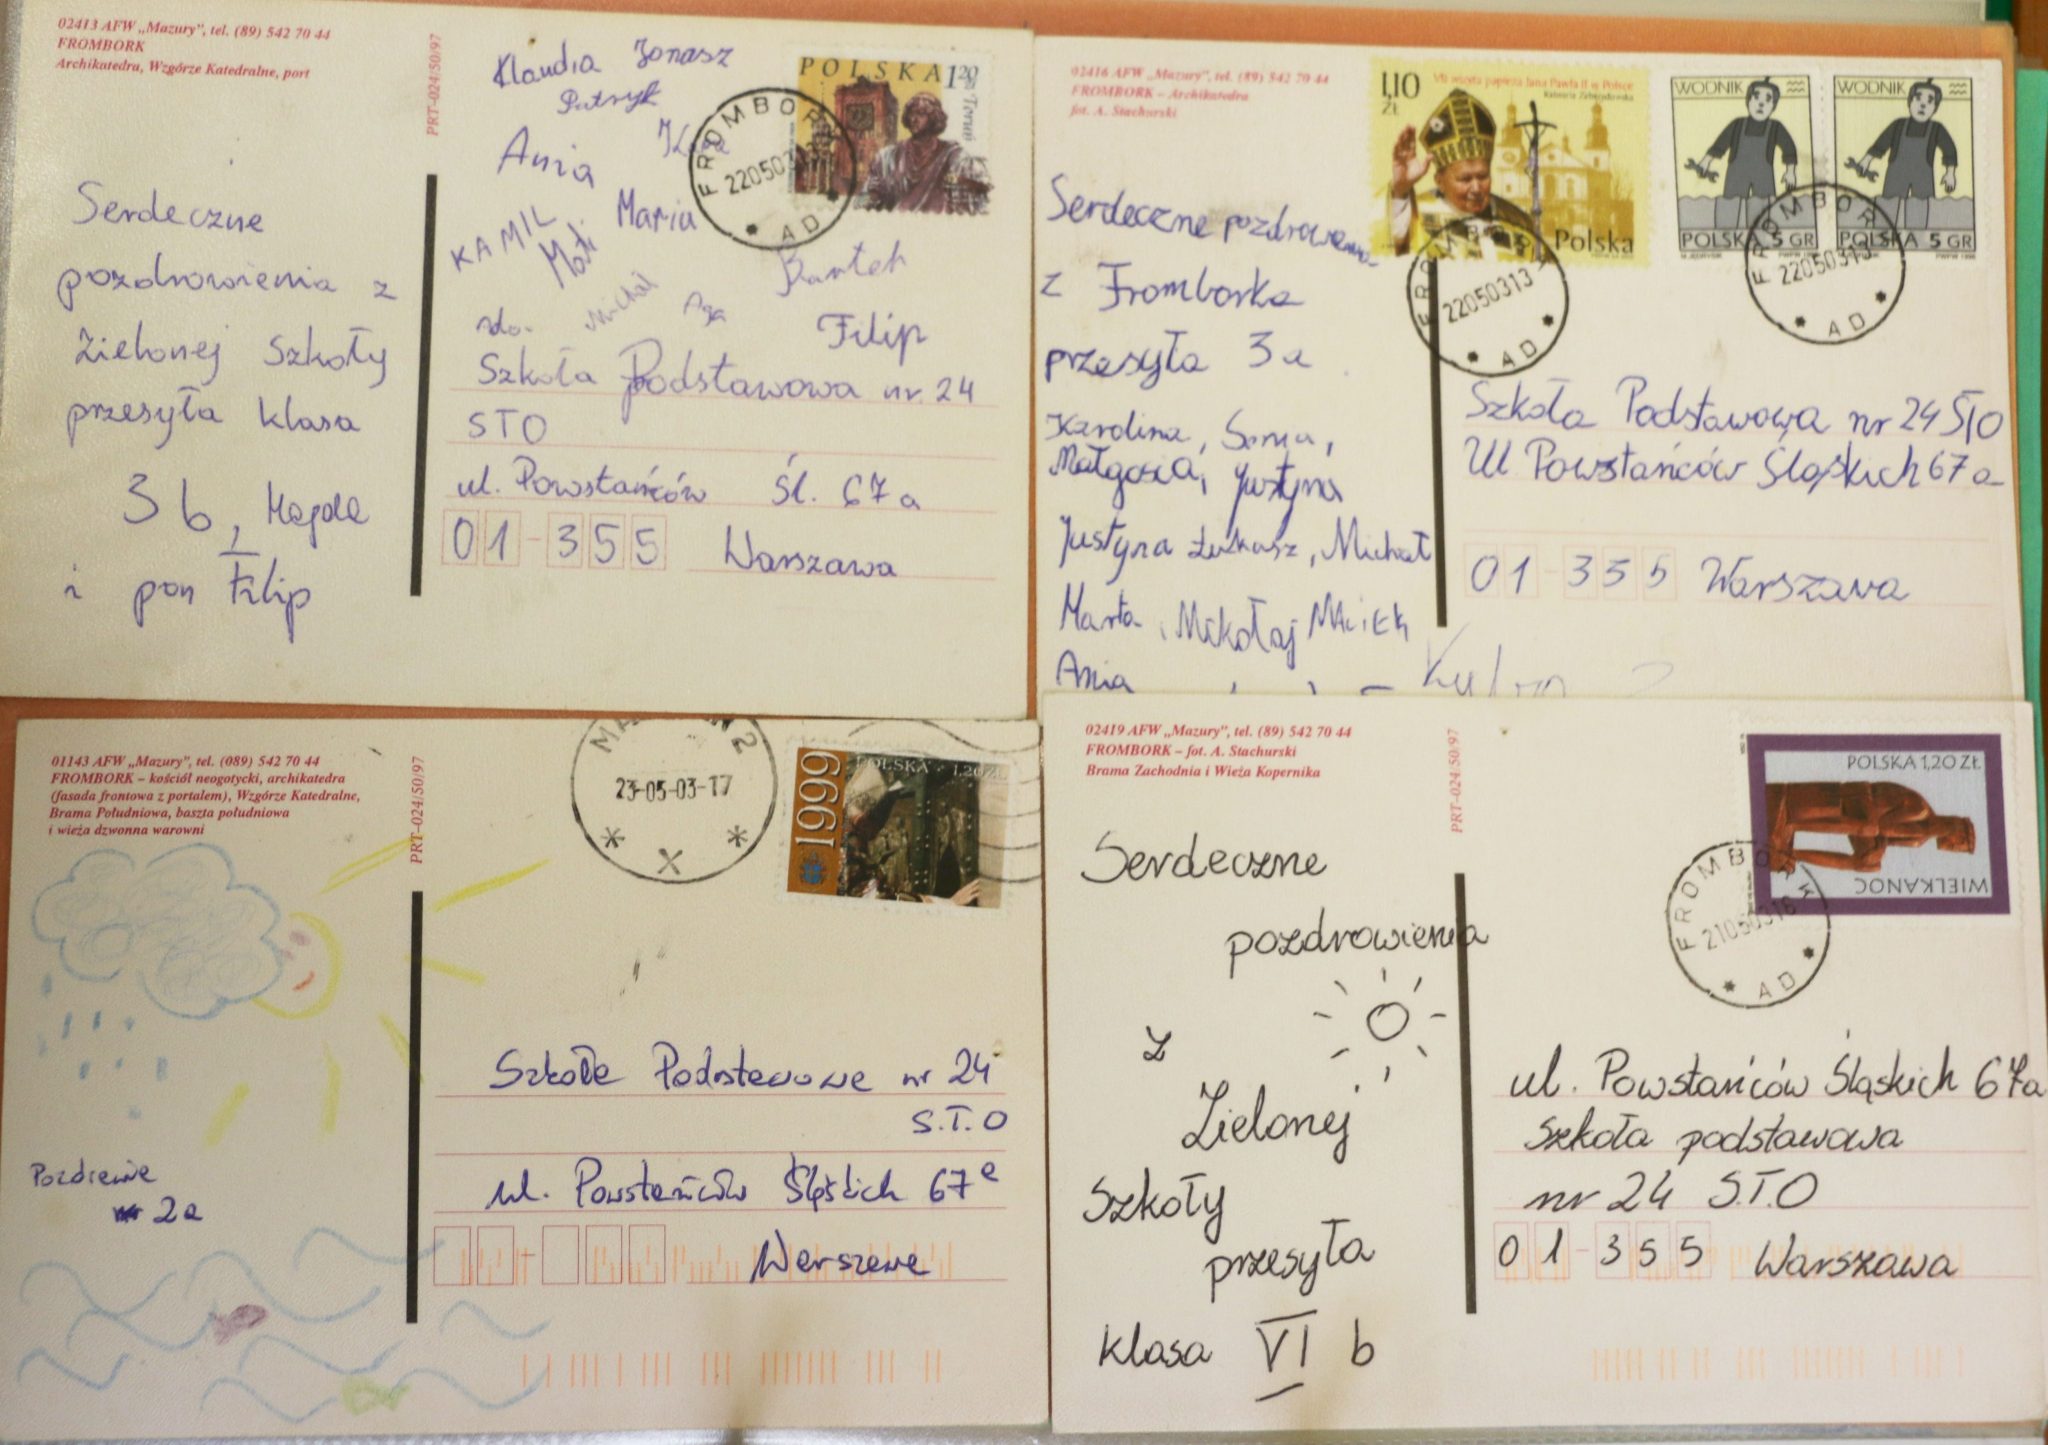 02413 AFW „Mazury", tel. (89) 542 70 44
FROMBORK
Archikatedra, Wzgórze Katedralne, port
PRT-024/50/97
Klaudia Jonasz
Patryk
Ania
KAMIL
Mati
Maria
Michał
Bartek
Filip
POLSKA 1 20
Toruń
FROMBORK
220503
AD
Serdeczne
pozdrowienia z
Zielonej Szkoły
przesyła klasa
3 b, Magda
i pan Filip
do.
Szkoła Podstawowa nr. 24
STO
ul. Powstańców Śl. 67 a
01-355 Warszawa
02416 AFW „Mazury", tel. (89) 542 70 44
FROMBORK – Archikatedra
fot. A. Stachurski
1,10 ZŁ
VII wizyta papieża Jana Pawła II w Polsce
Polska
WODNIK
POLSKA 5 GR
WODNIK
POLSKA 5 GR
FROMBORK
22050313
AD
FROMBORK
22050313
AD
Serdeczne pozdrowienia
z Fromborka
przesyła 3 a
Karolina, Sonia,
Małgosia, Justyna
Justyna Łukasz, Michał
Marta, Mikołaj Maciek
Ania
Szkoła Podstawowa nr 24 STO
Ul Powstańców Śląskich 67 a
01-355 Warszawa
01143 AFW „Mazury", tel. (089) 542 70 44
FROMBORK – kościół neogotycki, archikatedra
(fasada frontowa z portalem), Wzgórze Katedralne,
Brama Południowa, baszta południowa
i wieża dzwonna warowni
PRT-024/50/97
23-05-03-17
1999
POLSKA 1,20 ZŁ
Pozdrowie
2a
Szkoła Podstawowa nr 24
S.T.O
ul. Powstańców Śląskich 67a
Warszawa
02419 AFW „Mazury", tel. (89) 542 70 44
FROMBORK – fot. A. Stachurski
Brama Zachodnia i Wieża Kopernika
PRT-024/50/97
POLSKA 1,20 ZŁ
WIELKANOC
FROMBORK
21050316
AD
Serdeczne
pozdrowienia
z
Zielonej
Szkoły
przesyła
klasa VI b
ul. Powstańców Śląskich 67a
Szkoła podstawowa
nr 24 S.T.O
01-355 Warszawa